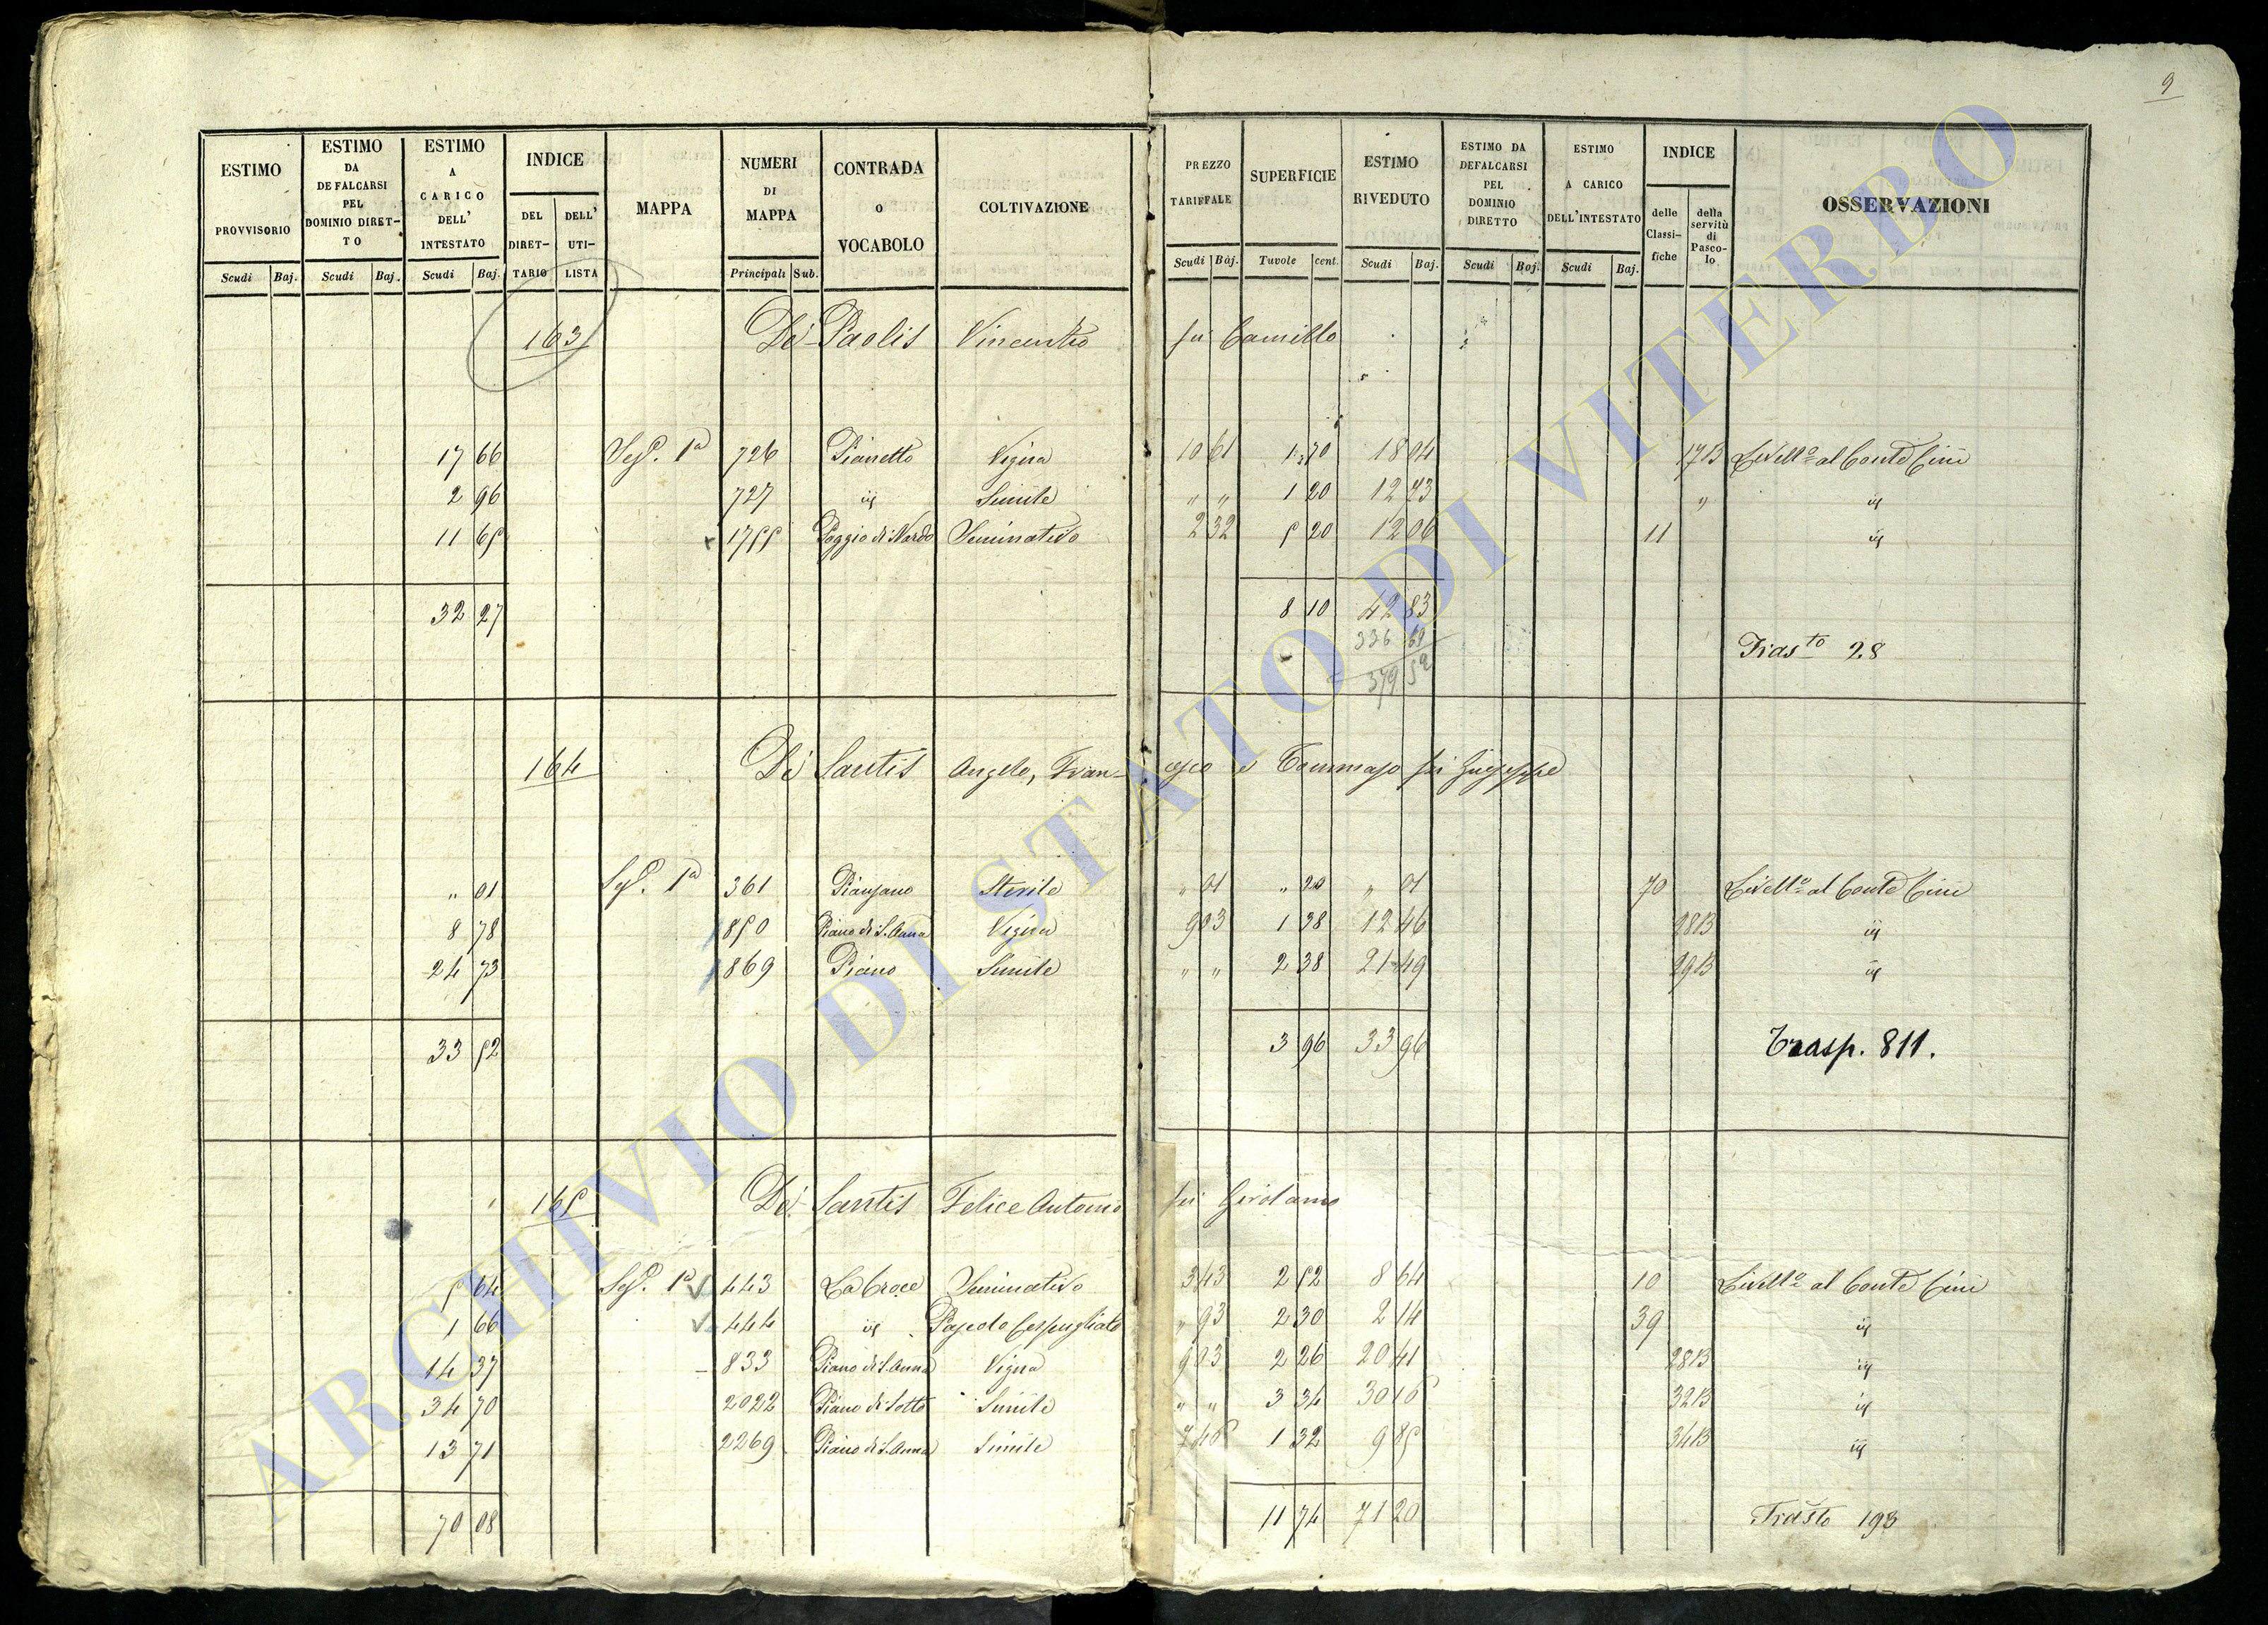 9
ESTIMO PROVVISORIO Scudi Baj.
ESTIMO DA DEFALCARSI PEL DOMINIO DIRET-TO Scudi Baj.
ESTIMO A CARICO DELL' INTESTATO Scudi Baj.
INDICE DEL DIRET-TARIO DELL' UTI-LISTA
MAPPA
NUMERI DI MAPPA Principali Sub.
CONTRADA o VOCABOLO
COLTIVAZIONE
PREZZO TARIFFALE Scudi Baj.
SUPERFICIE Tavole cent.
ESTIMO RIVEDUTO Scudi Baj.
ESTIMO DA DEFALCARSI PEL DOMINIO DIRETTO Scudi Boj.
ESTIMO A CARICO DELL'INTESTATO Scudi Baj.
INDICE delle Classi-fiche della servitù di Pasco-lo
OSSERVAZIONI
163 De Paolis Vincenzo fu Camillo
17 66 Sez. 1a 726 Pianetto Vigna 10 61 1 70 18 04 17 B Livello al Conte Cini
2 96 727 id Simile " " 1 20 12 73 " id
11 65 1755 Poggio di Nardo Seminativo 2 32 5 20 12 06 11 id
32 27 8 10 42 83
336 69
379 52
Trasto 28
164 De Santis Angelo, Fran-cesco e Tommaso fu Giuseppe
" 01 Sez. 1a 361 Pianzano Sterile " 01 " 20 " 01 70 Livello al Conte Cini
8 78 850 Piano di S. Anna Vigna 9 03 1 38 12 46 28 B id
24 73 869 Piano Simile " " 2 38 21 49 29 B id
33 52 3 96 33 96
Trasp. 811.
165 De Santis Felice Antonio fu Girolamo
5 64 Sez. 1a 443 La Croce Seminativo 3 43 2 52 8 64 10 Livello al Conte Cini
1 66 444 id Pascolo Cespugliato " 93 2 30 2 14 39 id
14 37 833 Piano di S. Anna Vigna 9 03 2 26 20 41 28 B id
34 70 2022 Piano di Sotto Simile " " 3 34 30 16 32 B id
13 71 2269 Piano di S. Anna Simile 7 46 1 32 9 85 34 B id
70 08 11 74 71 20
Trasto 193
ARCHIVIO DI STATO DI VITERBO